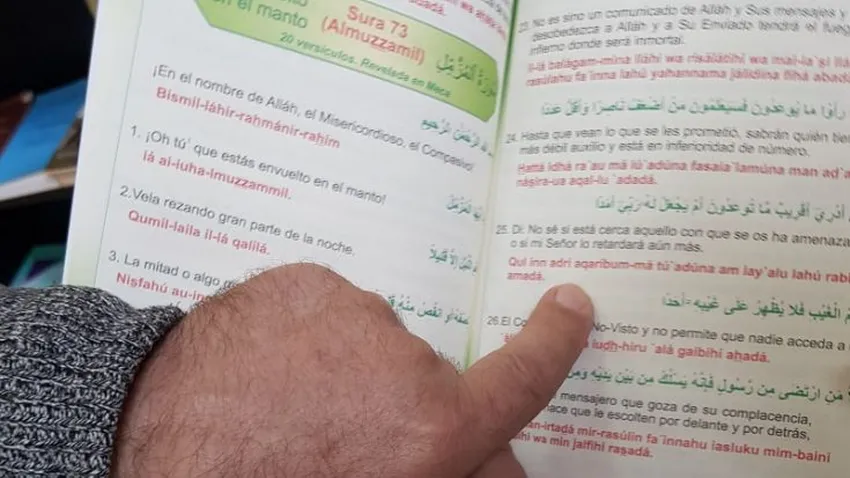 n el manto
Sura 73
(Almuzzamil)
سورة المزمل
20 versículos. Revelada en Meca
¡En el nombre de Alláh, el Misericordioso, el Compasivo!
الرحمن الرحيم
Bismil-láhir-rahmánir-rahim
1. ¡Oh tú' que estás envuelto en el manto!
iá ai-iuha-lmuzzammil.
المزمل
2.Vela rezando gran parte de la noche.
Qumil-laila il-lá qalilá.
قليلا
3. La mitad o algo
Nisfahú au-in
أو انقص منه
23. No es sino un comunicado de Alláh y Sus mensajes y
desobedezca a Alláh y a Su Enviado tendrá el fuego
infierno donde será inmortal.
il-lá balágam-mina lláhi wa risálátihí wa mai-ia
rasúlahu fa inna lahú yahannama jálidina fihá abadá
رأوا ما يوعدون فسيعلمون من أضعف ناصرا وأقل عددا
24. Hasta que vean lo que se les prometió, sabrán quién tien
más débil auxilio y está en inferioridad de número.
Hattá idhá ra`au má iú`adúna fasaia`lamúna man ad`a
násira-ua aqal-lu `adadá.
أدري أقريب ما توعدون أم يجعل له ربي أمدا
25. Di: No sé si está cerca aquello con que se os ha amenaza
o si mi Señor lo retardará aún más.
Qul inn adri aqaribum-má tú`adúna am iay`alu lahú rabi
amadá.
الغيب فلا يظهر على غيبه أحدا
26.El Co No-Visto y no permite que nadie acceda a
iudh-hiru `alá gaibihí ahadá.
من ارتضى من رسول فإنه يسلك من بين يديه ومن
mensajero que goza de su complacencia,
ace que le escolten por delante y por detrás,
an-irtadá mir-rasúlin fa`innahu iasluku mim-baini
ihi wa min jalfihí rasadá.